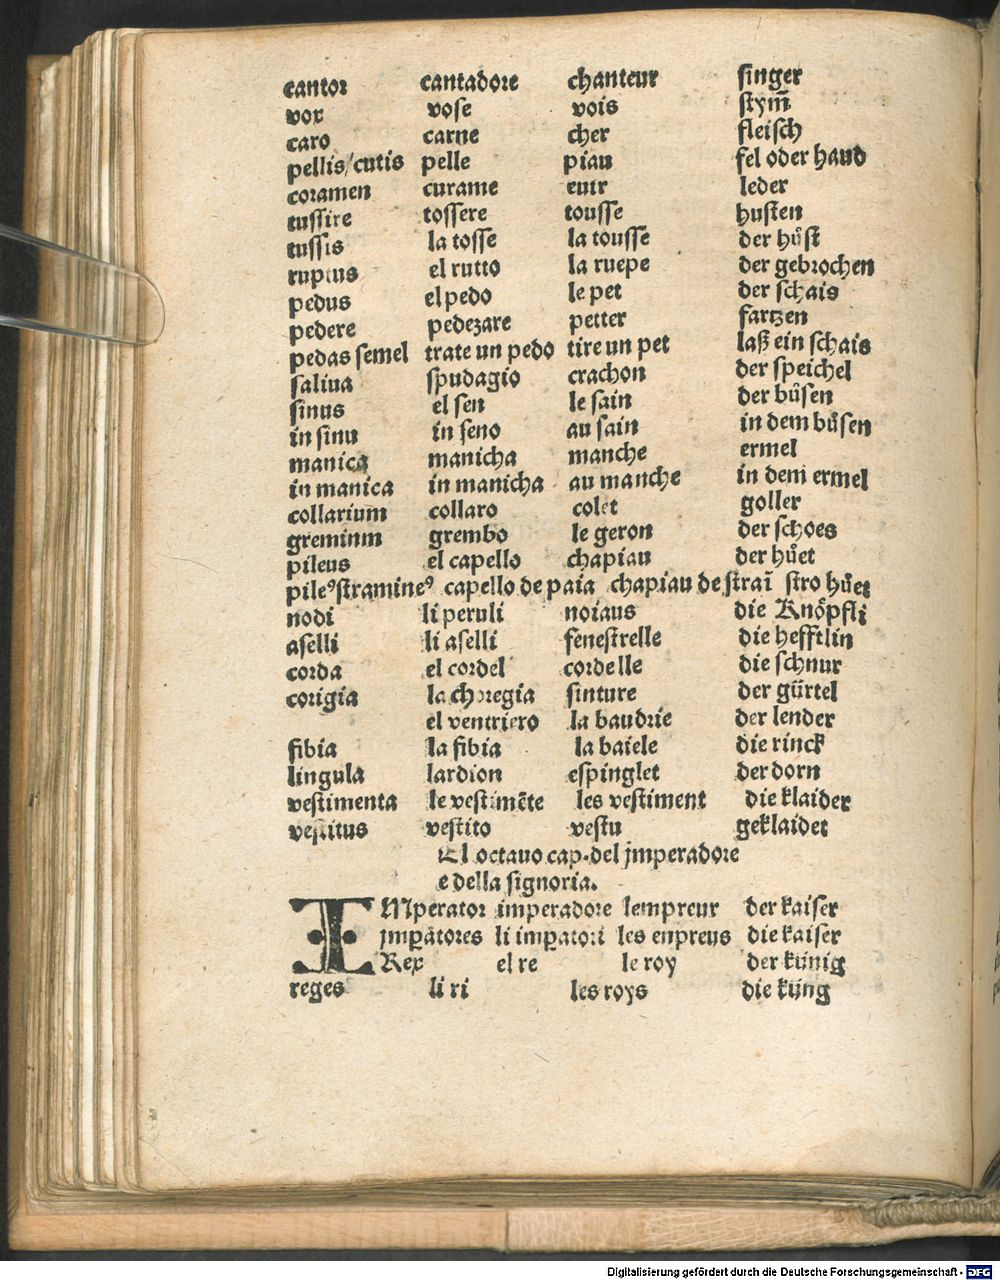 cantor cantadore chanteur singer
vox vose vois stym̄
caro carne cher fleisch
pellis/cutis pelle piau fel oder haud
coramen curame euir leder
tussire tossere tousse husten
tussis la tosse la tousse der hůst
ruptus el rutto la ruepe der gebrochen
pedus el pedo le pet der schais
pedere pedezare petter fartzen
pedas semel trate un pedo tire un pet laß ein schais
saliua spudagio crachon der speichel
sinus el sen le sain der bůsen
in sinu in seno au sain in dem bůsen
manica manicha manche ermel
in manica in manicha au manche in dem ermel
collarium collaro colet goller
gremium grembo le geron der schoes
pileus el capello chapiau der hůet
pileꝰ stramineꝰ capello de paia chapiau de straī stro hůet
nodi li peruli noiaus die Knöpfli
aselli li aselli fenestrelle die hefftlin
corda el cordel cordelle die schnur
corigia la choregia sinture der gürtel
el ventriero la baudrie der lender
fibia la fibia la baiele die rinck
lingula lardion espinglet der dorn
vestimenta le vestimēte les vestiment die klaider
vestitus vestito vestu geklaidet
El octauo cap. del jmperadore
e della signoria.
IMperator imperadore lempreur der kaiser
jmꝑatores li imꝑatori les enpreus die kaiser
Rex el re le roy der künig
reges li ri les roys die küng
Digitalisierung gefördert durch die Deutsche Forschungsgemeinschaft - DFG